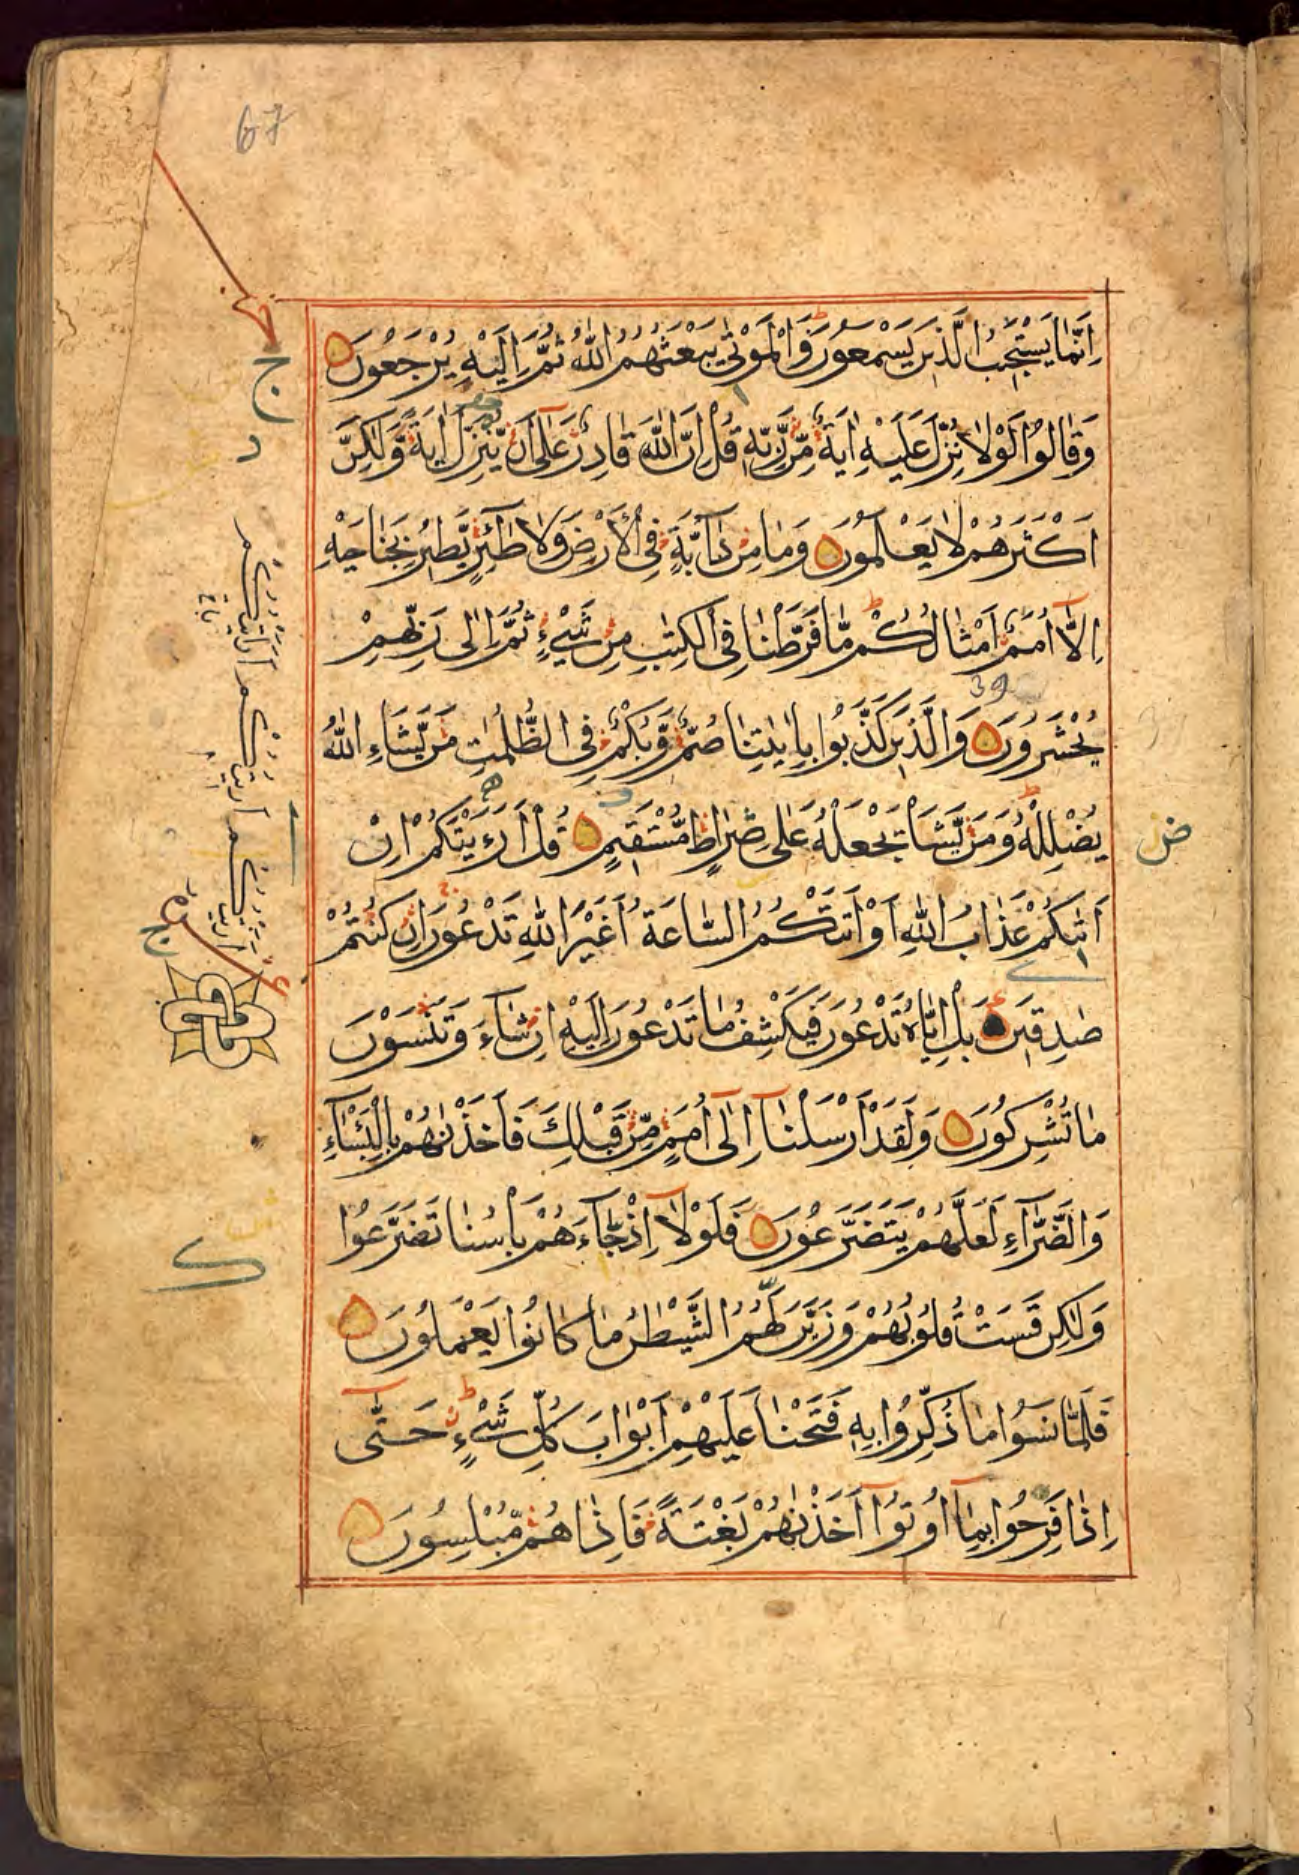 67
اِنَّمَا يَسْتَجِيْبُ الَّذِيْنَ يَسْمَعُوْنَ وَالْمَوْتٰى يَبْعَثُهُمُ اللّٰهُ ثُمَّ اِلَيْهِ يُرْجَعُوْنَ
وَقَالُوْا لَوْلَا نُزِّلَ عَلَيْهِ اٰيَةٌ مِّنْ رَّبِّهٖ قُلْ اِنَّ اللّٰهَ قَادِرٌ عَلٰٓى اَنْ يُّنَزِّلَ اٰيَةً وَّلٰكِنَّ
اَكْثَرَهُمْ لَا يَعْلَمُوْنَ وَمَا مِنْ دَآبَّةٍ فِى الْاَرْضِ وَلَا طٰٓئِرٍ يَّطِيْرُ بِجَنَاحَيْهِ
اِلَّآ اُمَمٌ اَمْثَالُكُمْ مَّا فَرَّطْنَا فِى الْكِتٰبِ مِنْ شَيْءٍ ثُمَّ اِلٰى رَبِّهِمْ
39
يُحْشَرُوْنَ وَالَّذِيْنَ كَذَّبُوْا بِاٰيٰتِنَا صُمٌّ وَّبُكْمٌ فِى الظُّلُمٰتِ مَنْ يَّشَاءِ اللّٰهُ
يُضْلِلْهُ وَمَنْ يَّشَاْ يَجْعَلْهُ عَلٰى صِرَاطٍ مُّسْتَقِيْمٍ قُلْ اَرَءَيْتَكُمْ اِنْ
ض
اَتٰىكُمْ عَذَابُ اللّٰهِ اَوْ اَتَتْكُمُ السَّاعَةُ اَغَيْرَ اللّٰهِ تَدْعُوْنَ اِنْ كُنْتُمْ
صٰدِقِيْنَ بَلْ اِيَّاهُ تَدْعُوْنَ فَيَكْشِفُ مَا تَدْعُوْنَ اِلَيْهِ اِنْ شَآءَ وَتَنْسَوْنَ
مَا تُشْرِكُوْنَ وَلَقَدْ اَرْسَلْنَآ اِلٰٓى اُمَمٍ مِّنْ قَبْلِكَ فَاَخَذْنٰهُمْ بِالْبَئْسَآءِ
وَالضَّرَّآءِ لَعَلَّهُمْ يَتَضَرَّعُوْنَ فَلَوْلَآ اِذْ جَآءَهُمْ بَاْسُنَا تَضَرَّعُوْا
وَلٰكِنْ قَسَتْ قُلُوْبُهُمْ وَزَيَّنَ لَهُمُ الشَّيْطٰنُ مَا كَانُوْا يَعْمَلُوْنَ
فَلَمَّا نَسُوْا مَا ذُكِّرُوْا بِهٖ فَتَحْنَا عَلَيْهِمْ اَبْوَابَ كُلِّ شَيْءٍ حَتّٰٓى
اِذَا فَرِحُوْا بِمَآ اُوْتُوْٓا اَخَذْنٰهُمْ بَغْتَةً فَاِذَا هُمْ مُّبْلِسُوْنَ